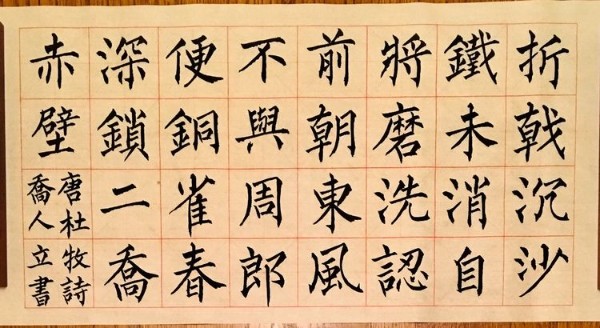 折戟沉沙
鐵未消自
將磨洗認
前朝東風
不與周郎
便銅雀春
深鎖二喬
赤壁
唐杜牧詩
喬人立書